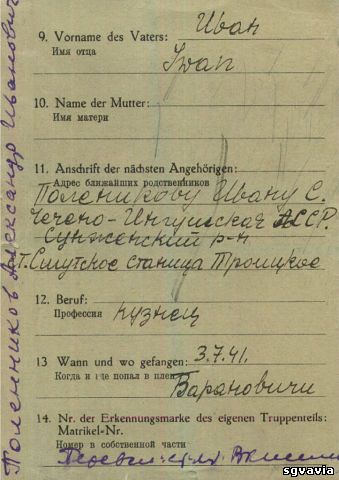 Поленников Александр Иванович
9. Vorname des Vaters: Иван
Имя отца
Iwan
10. Name der Mutter:
Имя матери
11. Anschrift der nächsten Angehörigen:
Адрес ближайших родственников
Поленникову Ивану С.
Чечено-Ингушская АССР.
Сунженский р-н
станица Троицкое
12. Beruf:
Профессия кузнец
13 Wann und wo gefangen: 3.7.41.
Когда и где попал в плен
Барановичи
14. Nr. der Erkennungsmarke des eigenen Truppenteils:
Matrikel-Nr.
Номер в собственной части
sgvavia